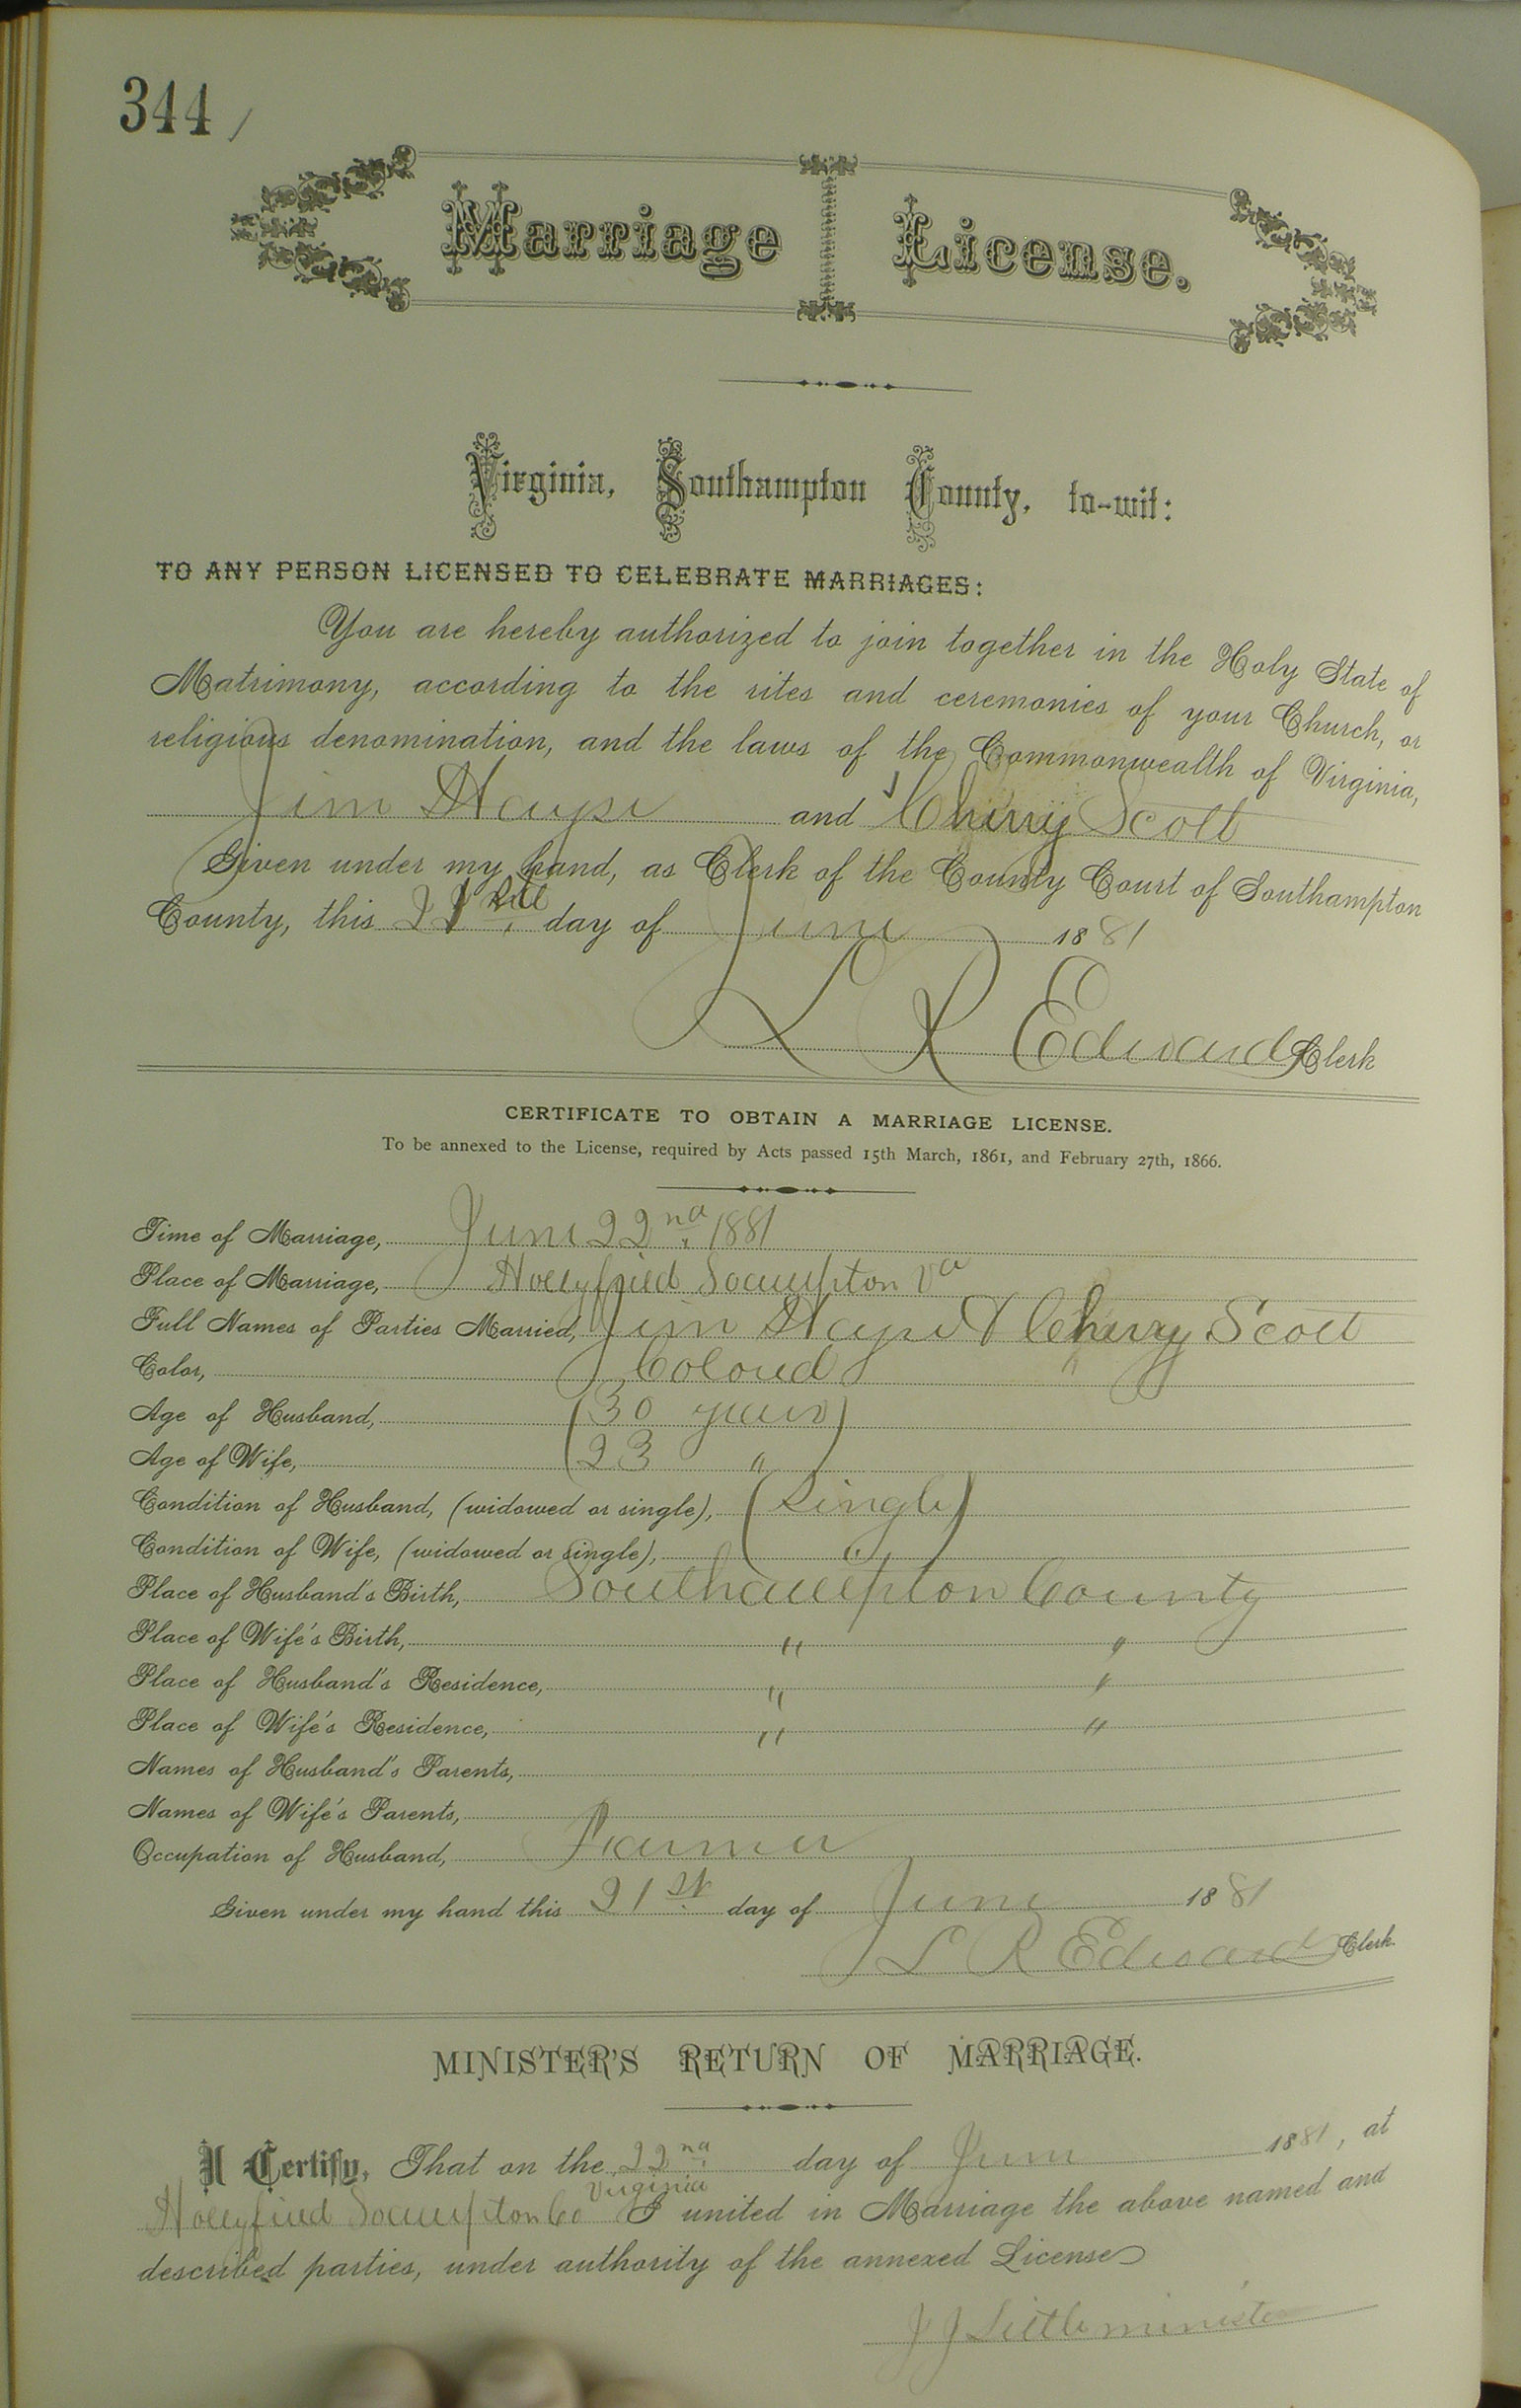 344
Marriage License.
Virginia, Southampton County, to-wit:
TO ANY PERSON LICENSED TO CELEBRATE MARRIAGES:
You are hereby authorized to join together in the Holy State of
Matrimony, according to the rites and ceremonies of your Church, or
religious denomination, and the laws of the Commonwealth of Virginia,
Jim and Cherry Scott
Given under my hand, as Clerk of the County Court of Southampton
County, this day of June 1881
L R Edwards Clerk
CERTIFICATE TO OBTAIN A MARRIAGE LICENSE.
To be annexed to the License, required by Acts passed 15th March, 1861, and February 27th, 1866.
Time of Marriage, June 22nd 1881
Place of Marriage, Va
Full Names of Parties Married, Jim & Cherry Scott
Color, Colored "
Age of Husband, (30 years)
Age of Wife, (23 " )
Condition of Husband, (widowed or single), (Single)
Condition of Wife, (widowed or single), ( " )
Place of Husband's Birth, Southampton County
Place of Wife's Birth, " "
Place of Husband's Residence, " "
Place of Wife's Residence, " "
Names of Husband's Parents,
Names of Wife's Parents,
Occupation of Husband, Farmer
Given under my hand this 21st day of June 1881
L R Edwards Clerk.
MINISTER'S RETURN OF MARRIAGE.
I Certify, That on the 22nd day of June 1881, at
Co Virginia I united in Marriage the above named and
described parties, under authority of the annexed License
J J Little minister